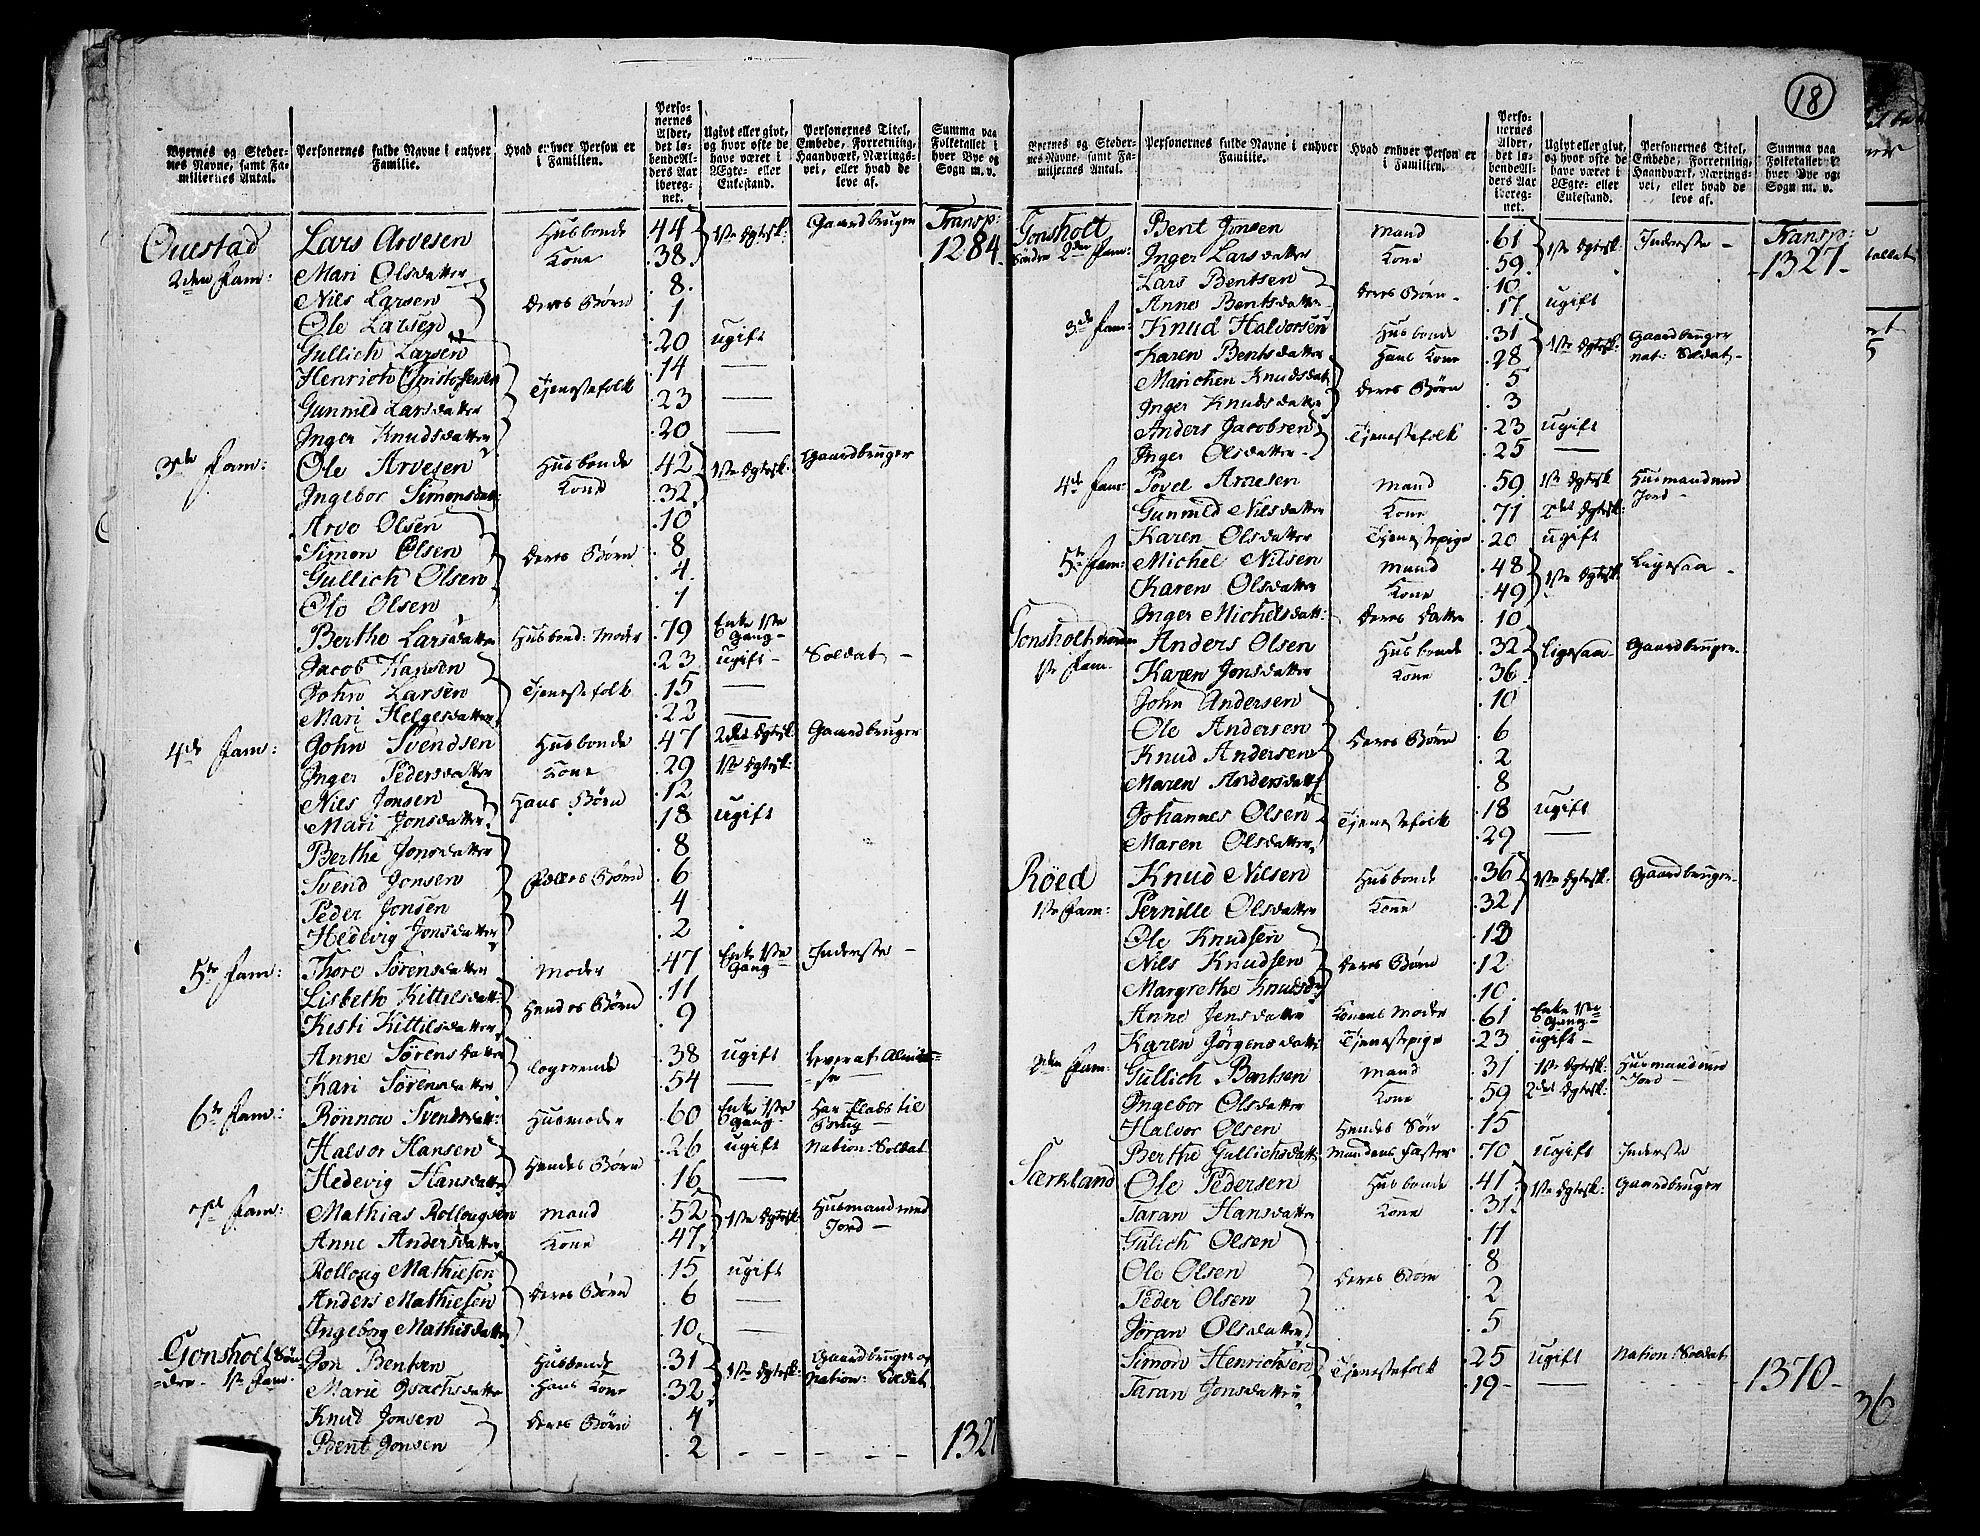 18
Byernes og Steder-
nes Navne, samt Fa-
miliernes Antal.
Personernes fulde Navne i enhver
Familie.
Hvad enhver Person er
i Familien.
Perso-
nernes
Alder,
det lø-
bendeAl-
ders Aar
ibereg-
net.
Ugivt eller givt,
og hvor ofte de
have været i
Ægte- eller
Enkestand.
Personernes Titel,
Embede, Forretning,
Haandværk, Nærings-
vei, eller hvad de
leve af.
Summa paa
Folketallet i
hver Bye og
Sogn m. v.
Lars Arvesen Husbonde 44 1ste Egtesk: Gaardbruger Transp:
2den Fam: Mari Olsdatter Kone 38. 1284.
Nils Larsen Deres Børn 8.
Ole Larsen 1
Gullich Larsen Tjenestefolk 20 ugift
Henrich Christophersen 14 —
Gunnild Larsdatter 23 —
Inger Knudsdatter 20 —
3die Fam: Ole Arvesen Husbonde 42 1ste Egtesk: Gaardbruger
Ingebor Simonsdatt: Kone 32.
Arvo Olsen Deres Børn 10
Simon Olsen 8
Gullich Olsen 4
Olo Olsen 1
Berthe Larsdatter Husbond: Moder 79 Enke 1ste Gang-
Jacob Hansen Tjenestefolk 23 ugift- Soldat -
John Larsen 15 —
Mari Helgesdatter 22 —
4de Fam: John Svendsen Husbonde 47 2det Egtesk: Gaardbruger
Inger Pedersdatter Kone 29 1ste Egtesk:
Nils Jonsen Hans Børn 12
Mari Jonsdatter 18 ugift
Berthe Jonsdatter Fælles Børn 8
Svend Jonsen 6
Peder Jonsen 4
Hedevig Jonsdatter 2
5te Fam: Thore Sørensdatter Moder 47 Enke 1ste Gang Inderste -
Lisbeth Kittelsdatt: Hendes Børn 11
Kisti Kittilsdatter 9
Anne Sørensdatter Logerende 38 ugift
Kari Sørensdatter 54 —
6te Fam: Rønnow Svendsdatt: Husmoder 60 Enke 1ste Gang- Har Plads til Brug —
Halvor Hansen Hendes Børn 26 ugift Nation: Soldat
Hedevig Hansdatter 16 —
Fam: Mathias Rollougsen Mand 52 1ste Egtesk: Husmand med Jord —
Anne Andersdatter Kone 47.
Rolloug Mathiesen Deres Børn 15 ugift
Anders Mathiesen 6 —
Ingeborg Mathisdatter 10 —
Gonsholt Søn-
dre - 1ste Fam. Jon Bentsen Husbonde 31 1ste Egtesk: Gaardbruger og Nation: Soldat
Marie Isachsdatter Hans Kone 32
Knud Jonsen Deres Børn 4
Bent Jonsen 2 - - - - 1327
Byernes og Steder-
nes Navne, samt Fa-
miljernes Antal.
Personernes fulde Navne i enhver
Familie.
Hvad enhver Person er
i Familien.
Perso-
nernes
Alder,
det lø-
bendeAl-
ders Aar
ibereg-
net.
Ugivt eller givt,
og hvor ofte de
have været i
Ægte- eller
Enkestand.
Personernes Titel,
Embede, Forretning,
Haandværk, Nærings-
vei, eller hvad de
leve af.
Summa paa
Folketallet i
hver Bye og
Sogn m. v.
Gonsholt Bent Jonsen Mand 61 1ste Egtesk: Inderste - Transp:
Søndre 2den Fam: Inger Larsdatter Kone 59. 1327.
Lars Bentsen Deres Børn- 10
Anne Bentsdatter 17 ugift
3die Fam: Knud Halvorsen Husbonde 31 1ste Egtesk: Gaardbruger nat: Soldat-
Karen Bentsdatter Hans Kone 28
Marichen Knudsdat Deres Børn 5
Inger Knudsdatter 3
Anders Jacobsen Tjenestefolk 23 ugift
Inger Olsdatter- 25 —
4de Fam: Povel Arvesen Mand 59 1ste Egtesk Husmand med Jord -
Gunnild Nilsdatter Kone 71 2det Egtesk:
Karen Olsdatter Tjenestepige 20 ugift
5te Fam: Michel Nilsen Mand 48 1ste Egtesk: Ligesaa -
Karen Olsdatter Kone 49
Inger Michelsdatt: Deres Datter 10
Gonsholt
1ste Fam Anders Olsen Husbonde 32 Ligesaa- Gaardbruger-
Karen Jonsdatter Kone 36
John Andersen Deres Børn 10
Ole Andersen 6
Knud Andersen 2
Maren Andersdatt 8
Johannes Olsen Tjenestefolk 18 ugift
Maren Olsdatter 29 —
Röed Knud Nilsen Husbonde 36 1ste Egtesk: Gaardbruger-
1ste Fam: Pernille Olsdatter Kone 32
Ole Knudsen Deres Børn
Nils Knudsen 12
Margrethe Knudsd 10
Anne Jensdatter Konens Moder 61 Enke 1ste Gang-
Karen Jörgensdatt Tjenestepige 23 ugift-
2den Fam: Gullich Bentsen Mand 31 1ste Egtesk: Husmand med Jord -
Ingebor Olsdatter Kone 59 2det Egtesk:
Halvor Olsen Hendes Søn 15
Berthe Gullichsdatt: Mandens Faster 70 ugift Inderste
Særkland Ole Pedersen Husbonde 41 1ste Egtesk: Gaardbruger
Taran Hansdatter Kone 31
Gulich Olsen Deres Børn 11
Ole Olsen 8
Peder Olsen 2
Jøran Olsdatter 5
Simon Henrichsen Tjenestefolk 25 ugift Nation: Soldat
Taran Jonsdatter 19 — - - 1370-
36